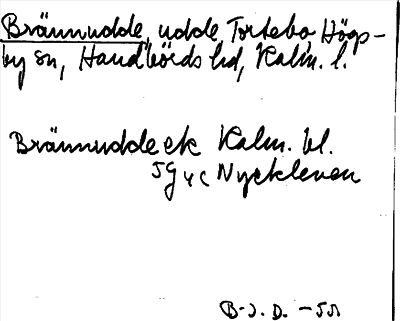 Brännudde, udde, Tortebo, Högs-
by sn, Handbörds hd, Kalm. l.
Brännudde ek Kalm. bl.
5G4c Nyckleven
B-J. D. -55